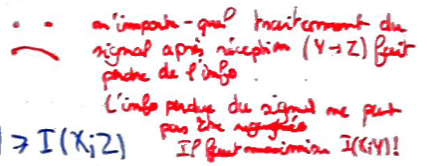 n'importe-quel traitement du
signal après réception (Y→Z) fait
perdre de l'info
L'info perdue du signal ne peut
pas être
Il faut maximiser I(X;Y)!
≥ I(X;Z)